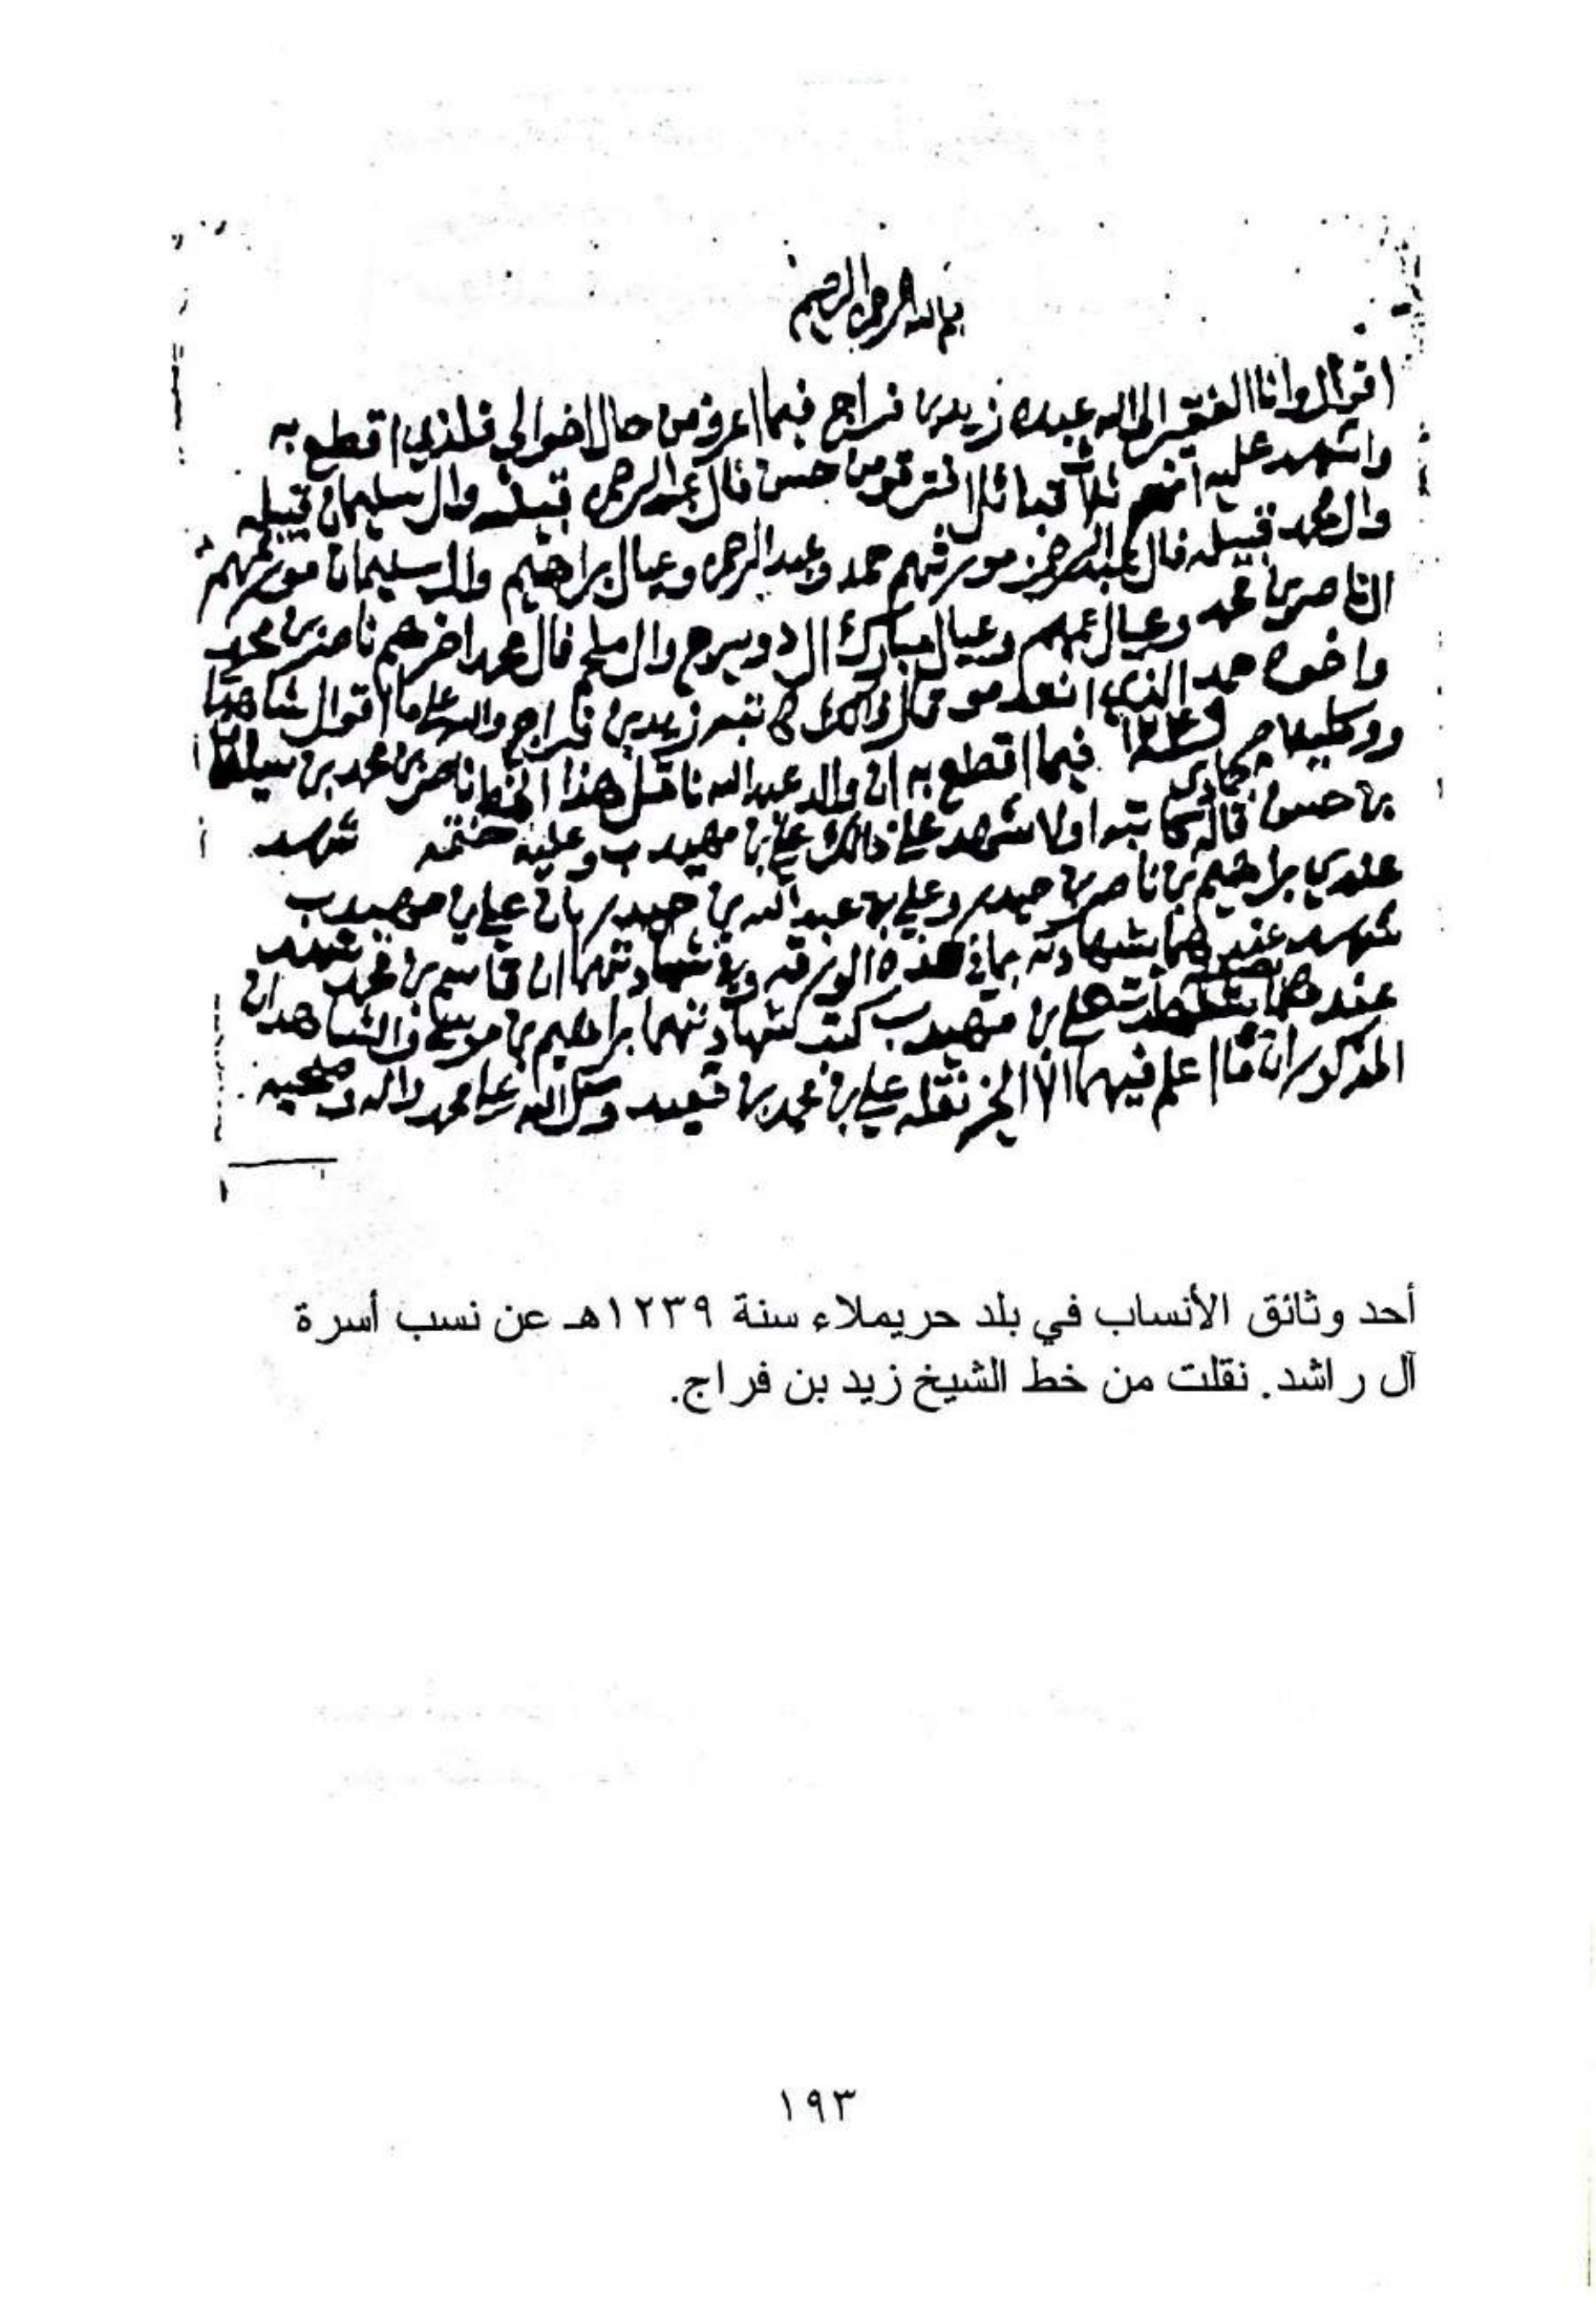 بسم الله الرحمن الرحيم
اقول وانا الفقير الى الله عبده زيد بن فراج فيما اعرف من حال اخوالي فلذي اقطع به
واشهد عليه انهم ثلاث قبائل افترقو من حسن فال عبد الرحمن قبيله وال سليمان قبيله
وال محمد قبيله فال عبد الرحمن مورقهم حمد وعبد الرحمن وعيال براهيم وال سليمان مورقهم
الناصر بن محمد وعيال عمهم وعيال مبارك ال دويرج وال ملحم فال محمد اخرهم ناصر بن محمد
واخوه حمد الذي انعدمو قال ذالك كاتبه زيد بن فراج والله على ما اقول شاهدا
ووكيلا جمادى ١٢٣٩ فيما اقطع به ان والد عبد الله ناقل هذا الخط ناصر بن محمد بن سليمان
بن حسن قاله كاتبه اولا شهد على ذالك علي بن مهيدب وعليه ختمه شهد
عندي براهيم بن ناصر بن حيدر وعلي بن عبد الله بن حيدر بان علي بن مهيدب
شهد عندهما بشهادته بما في هذه الورقه وفي شهادتهما ان قاسم بن محمد شهد
عندهما علي بن مهيدب كتب شهادتهما براهيم بن موسى والشاهدان
المذكوران ما اعلم فيهما الا الخير نقله علي بن محمد بن قعيد وصلى الله على محمد واله وصحبه
أحد وثائق الأنساب في بلد حريملاء سنة ١٢٣٩هـ عن نسب أسرة
آل راشد. نقلت من خط الشيخ زيد بن فراج.
١٩٣